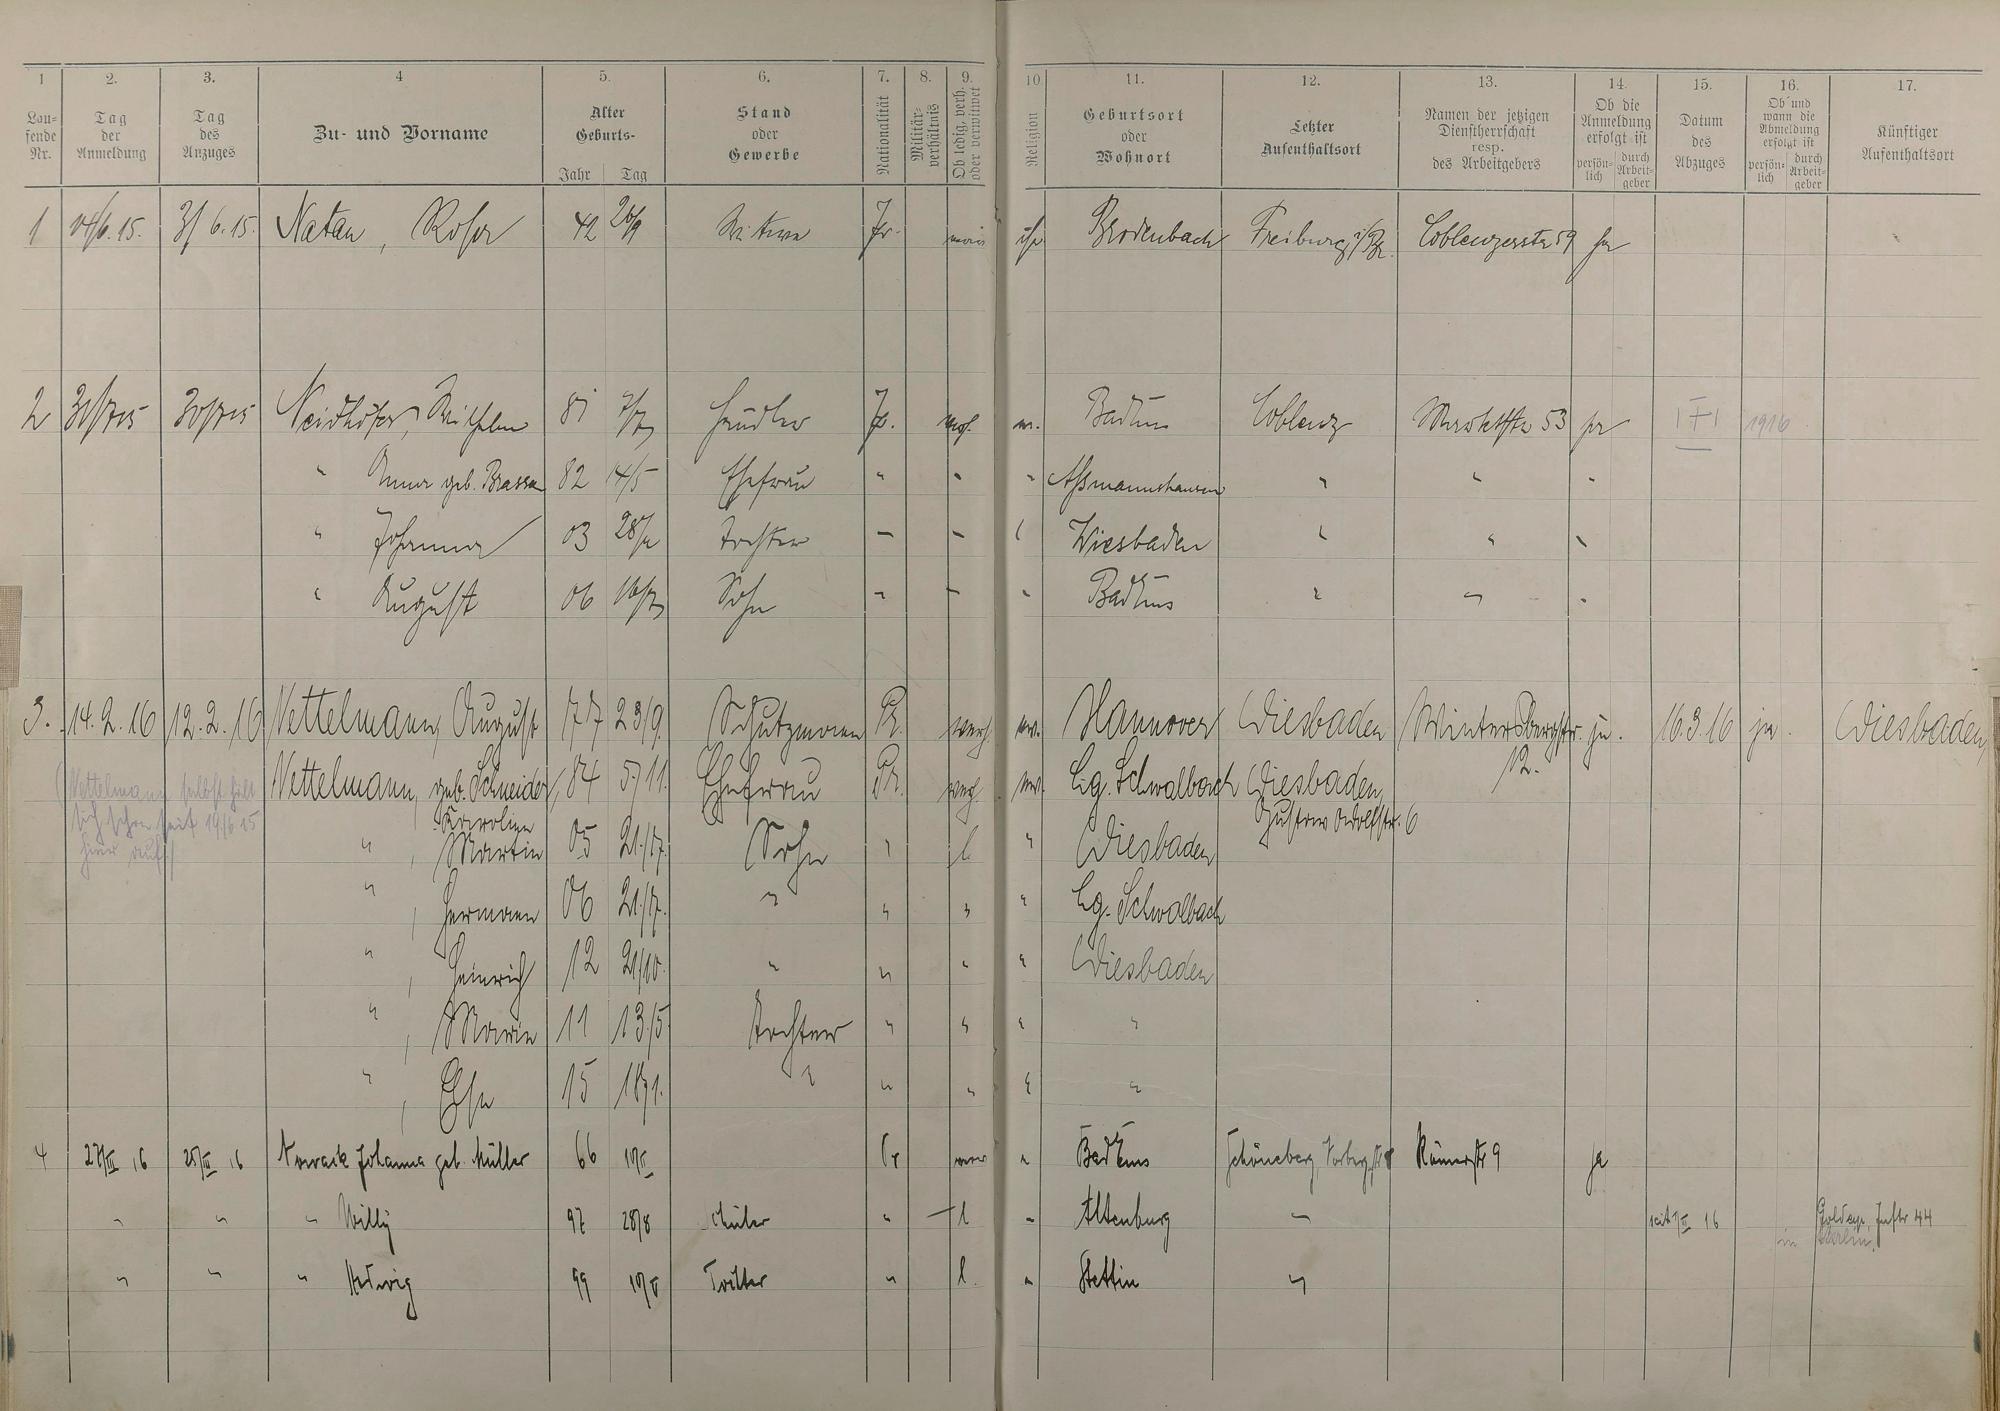 1 2. 3. 4 5. 6. 7. 8. 9. 10 11. 12. 13. 14. 15. 16. 17.
Lau-
fende
Nr.
Tag
der
Anmeldung
Tag
des
Anzuges
Zu- und Vorname
Alter
Geburts-
Jahr Tag
Stand
oder
Gewerbe
Nationalität
Militär-
verhältnis
Ob ledig, verh.
oder verwitwet
Religion
Geburtsort
oder
Wohnort
Letzter
Aufenthaltsort
Namen der jetzigen
Dienstherrschaft
resp.
des Arbeitgebers
Ob die
Anmeldung
erfolgt ist
persön-
lich
durch
Arbeit-
geber
Datum
des
Abzuges
Ob und
wann die
Abmeldung
erfolgt ist
persön-
lich
durch
Arbeit-
geber
Künftiger
Aufenthaltsort
1 6.15. 3/6.15. Natan, Rosa 42 26/9 Witwe Pr. isr Brodenbach Freiburg i/Br. Coblenzerstr 59 ja
2 30/7 15 30/7 15 Neidhöfer, Wilhelm 81 Händler Pr. BadEms Coblenz Marktstr 53 ja 1916
" Anna geb. Brassen 82 14/5 Ehefrau " " " Assmannshausen " " "
" Johanna 03 Tochter – – Wiesbaden " " "
" August 06 16/7 Sohn " – " BadEms " " "
3. 14.2.16 12.2.16 Nettelmann, August 77 23/9. Schutzmann Pr. verh. ev. Hannover Wiesbaden Wintersbergstr. ja. 16.3.16 ja. Wiesbaden
12.
Nettelmann, geb. Schneider, 84 5/11. Ehefrau Pr. verh. ev. Lg. Schwalbach Wiesbaden,
Karoline
Gustav Adolfstr. 6
(Nettelmann selbst hält
sich schon seit 19/6 15
hier auf.)
" , Martin 05 21./7. Sohn " l " Wiesbaden
" , Hermann 06 21./7. " " " " Lg. Schwalbach
" , Heinrich 12 21/10. " " " " Wiesbaden
" , Marie 11 13./5. Tochter " " " "
" , Else 15 18/1. " " " " "
4 27/III 16 25/III 16 Nowack Johanna geb. Müller 66 Pr " BadEms Schöneberg, Vorbergstr 8 Römerstr 9 ja
" " " Willy 97 28/8 Schüler " – l " Altenburg " seit 16 Inftr 44
in Berlin.
" " " Hedwig 99 10/V Tochter " l. " Stettin "